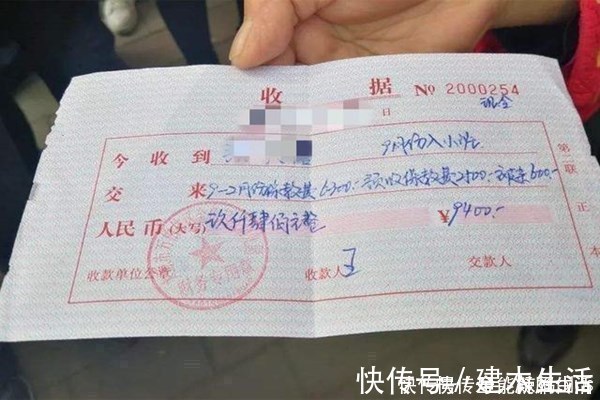 收 据 No 2000254
现金
日
今收到 9月份入小班
交 来 9-2月份保教费6300.- 预收保教费2500.- 600.-
人民币(大写) 玖仟肆佰元整 ¥9400.-
收款单位公章 收款人 王 交款人
财务专用章
第二联 正本
快传号/建木生活
快传号